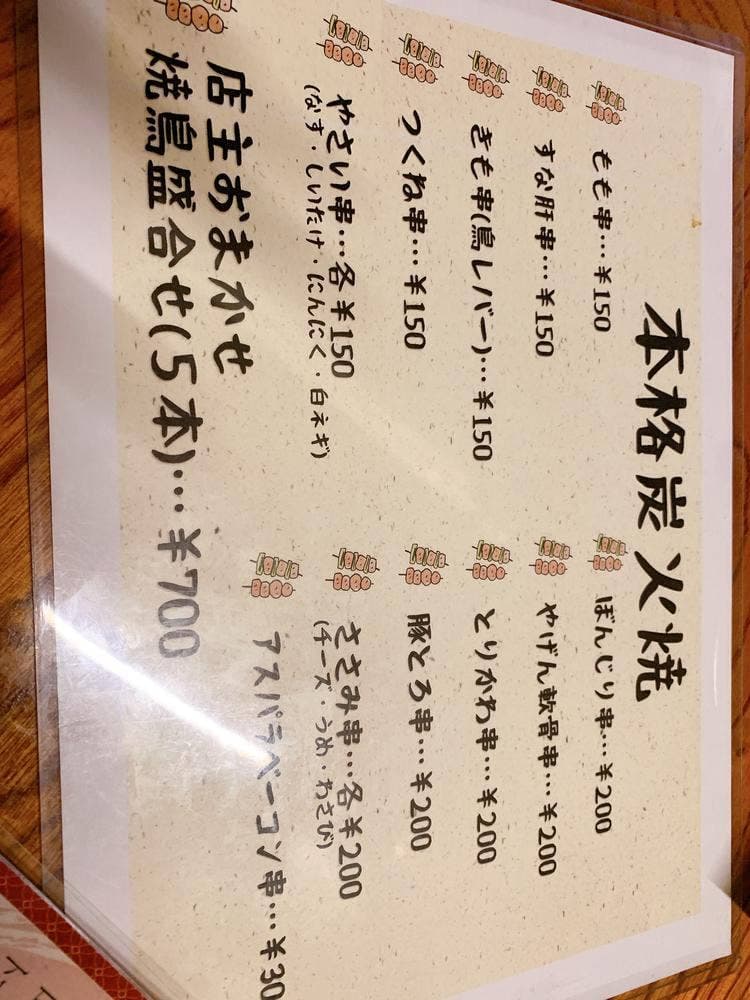 本格炭火焼
もも串…¥150
すな肝串…¥150
きも串(鳥レバー)…¥150
つくね串…¥150
やさい串…各¥150
(なす・しいたけ・にんにく・白ネギ)
ぼんじり串…¥200
やげん軟骨串…¥200
とりかわ串…¥200
豚とろ串…¥200
ささみ串…各¥200
(チーズ・うめ・わさび)
アスパラベーコン串…¥30
店主おまかせ
焼鳥盛合せ(5本)…¥700